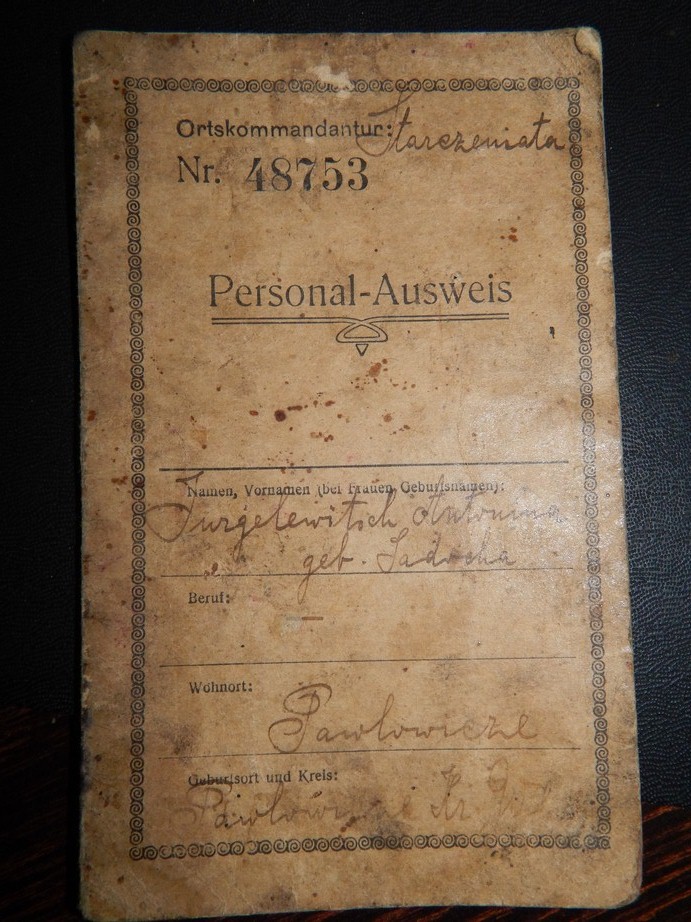 Ortskommandantur: Starczeniata
Nr. 48753
Personal-Ausweis
Namen, Vornamen (bei Frauen Geburtsnamen):
Jurgelewitsch Antonina
geb. Sadocha
Beruf:
—
Wohnort:
Pawlowicze
Geburtsort und Kreis:
Pawlowicze Kr.